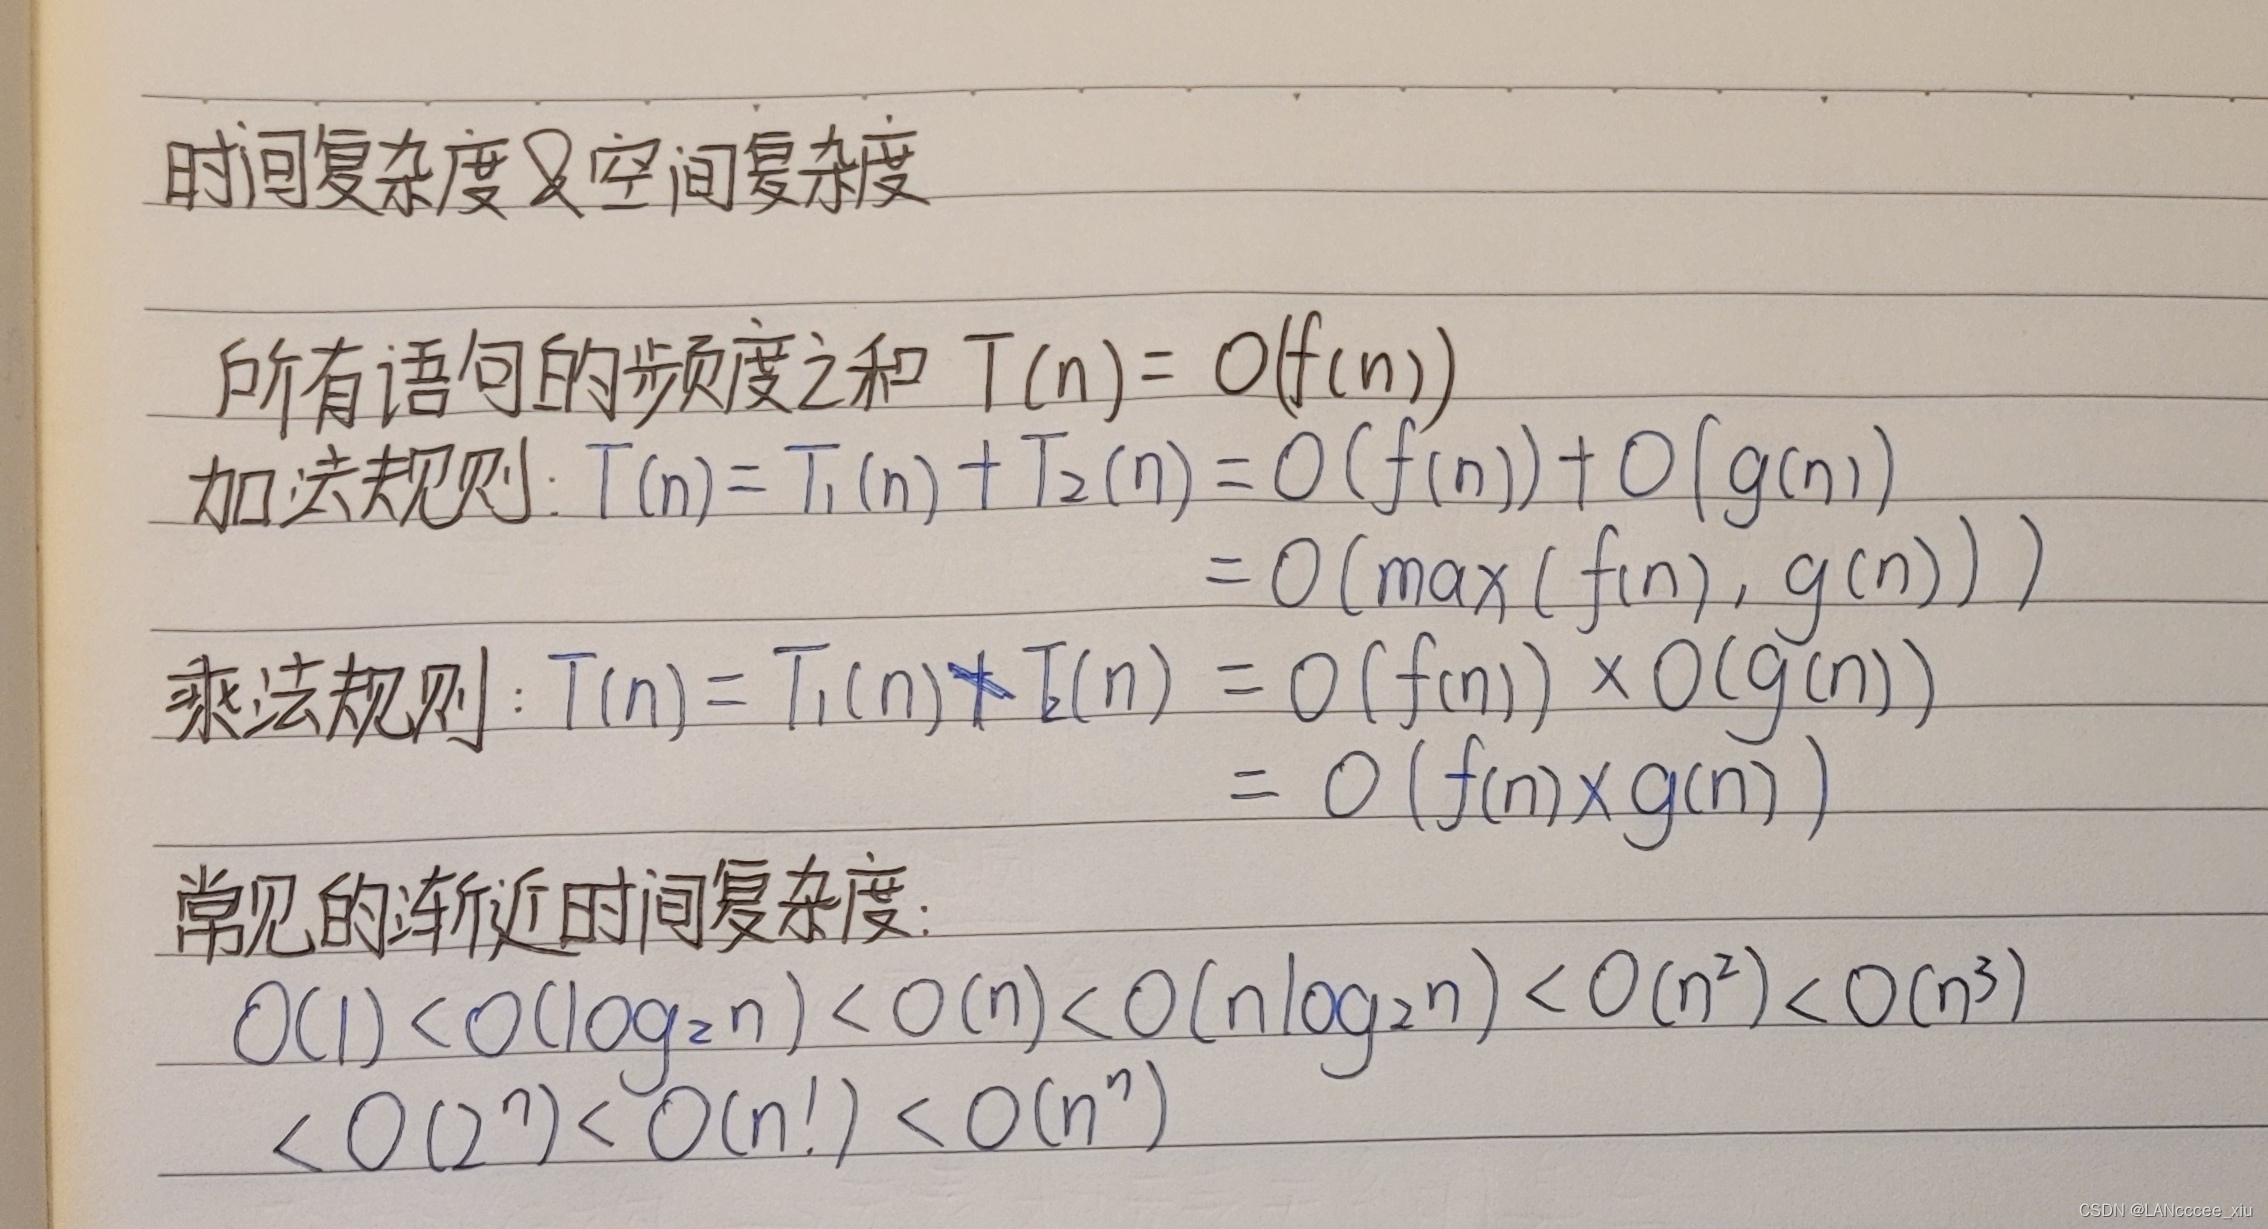 时间复杂度&空间复杂度
所有语句的频度之和 T(n) = O(f(n))
加法规则: T(n) = T₁(n) + T₂(n) = O(f(n)) + O(g(n))
= O(max(f(n), g(n)))
乘法规则: T(n) = T₁(n) × T₂(n) = O(f(n)) × O(g(n))
= O(f(n)×g(n))
常见的渐近时间复杂度:
O(1) < O(log₂n) < O(n) < O(nlog₂n) < O(n²) < O(n³)
< O(2ⁿ) < O(n!) < O(nⁿ)
CSDN @LANcccee_xiu